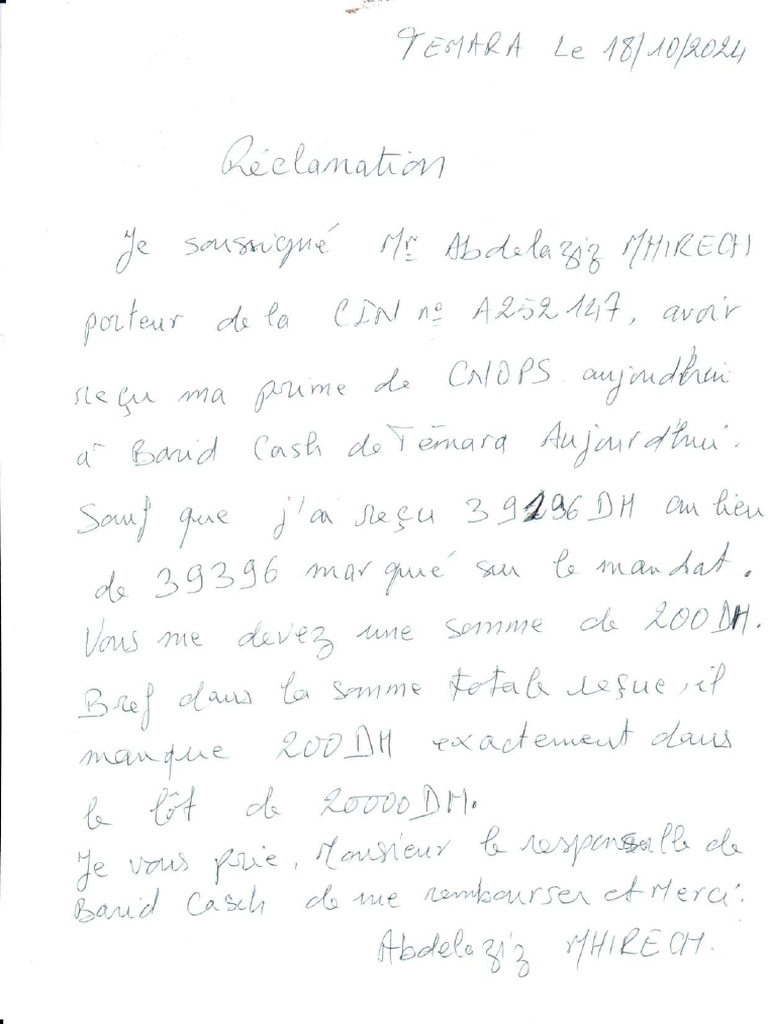 TEMARA Le 18/10/2024
Réclamation
Je soussigné Mr Abdelaziz MHIRECH
porteur de la CIN nº A252147, avoir
reçu ma prime de CNOPS aujourd'hui
à Barid Cash de Témara Aujourd'hui.
Sauf que j'ai reçu 39196 DH au lieu
de 39396 marqué sur le mandat.
Vous me devez une somme de 200 DH.
Bref dans la somme totale reçue, il
manque 200 DH exactement dans
le lôt de 20000 DH.
Je vous prie, Monsieur le responsable de
Barid Casch de me rembourser et Merci.
Abdelaziz MHIRECH.